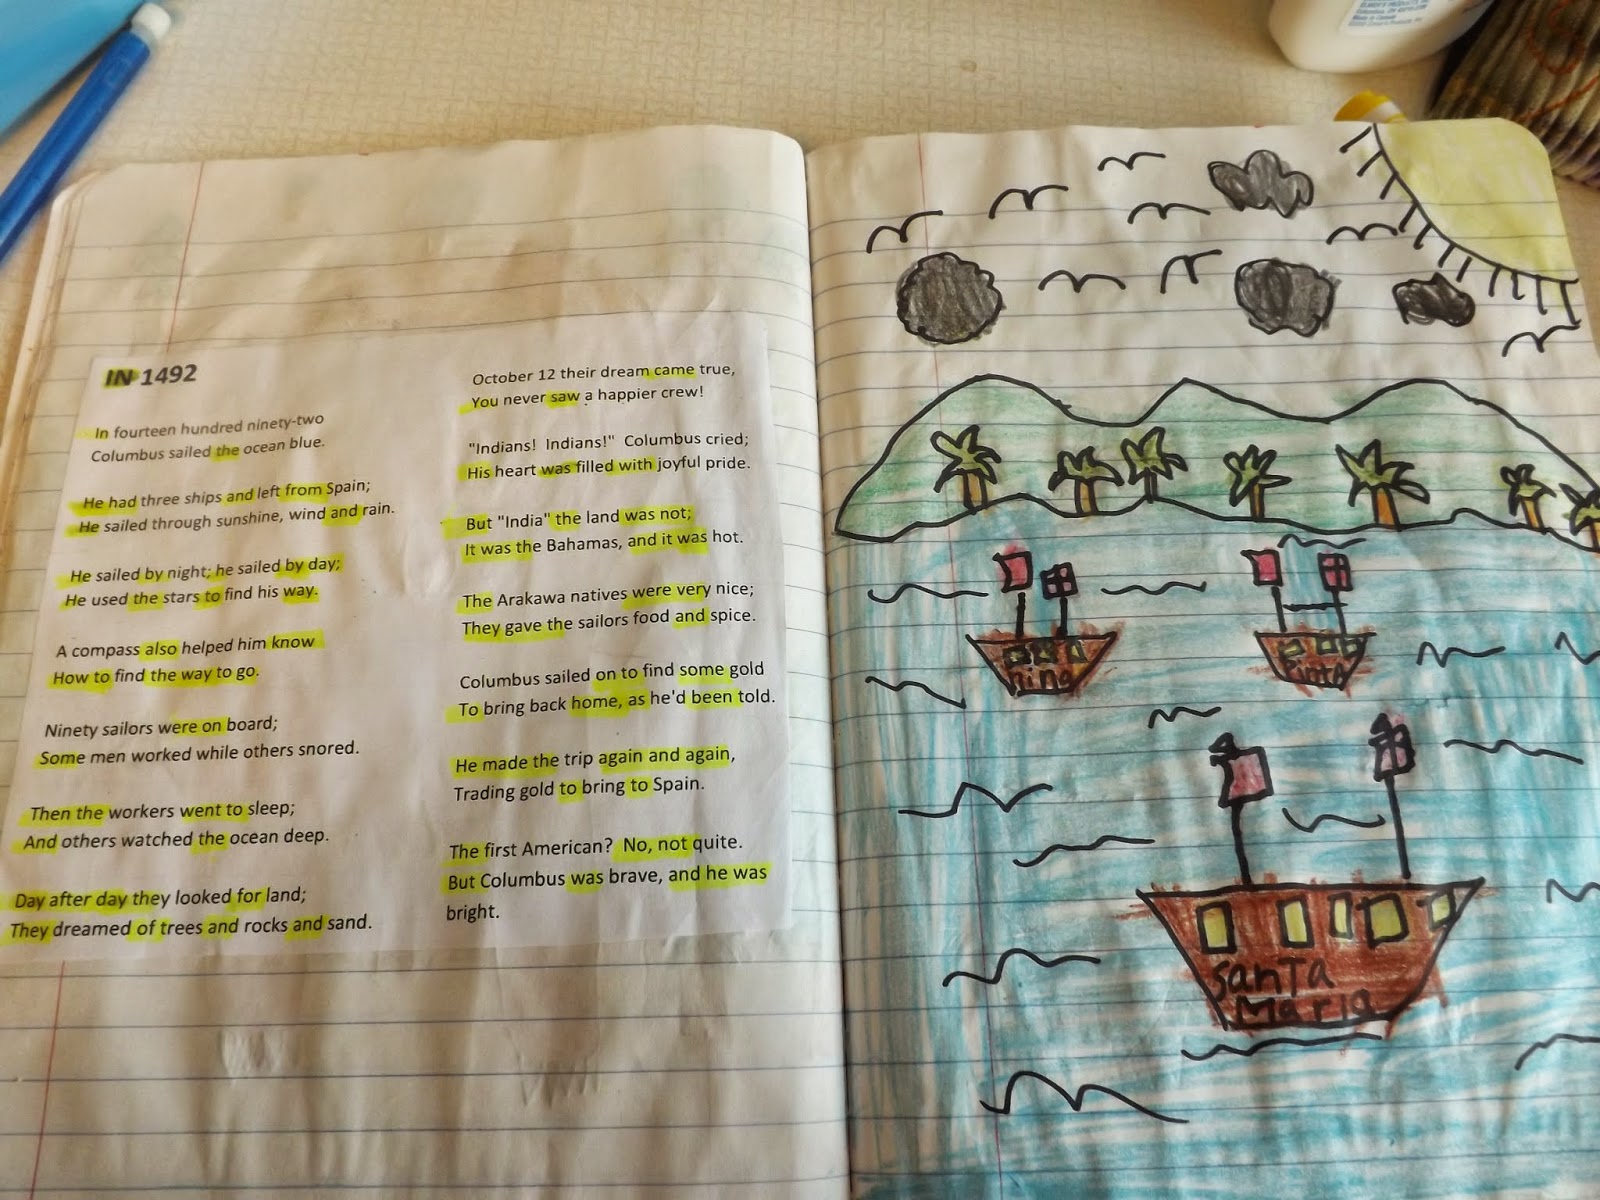 IN 1492
In fourteen hundred ninety-two
Columbus sailed the ocean blue.
He had three ships and left from Spain;
He sailed through sunshine, wind and rain.
He sailed by night; he sailed by day;
He used the stars to find his way.
A compass also helped him know
How to find the way to go.
Ninety sailors were on board;
Some men worked while others snored.
Then the workers went to sleep;
And others watched the ocean deep.
Day after day they looked for land;
They dreamed of trees and rocks and sand.
October 12 their dream came true,
You never saw a happier crew!
"Indians!  Indians!"  Columbus cried;
His heart was filled with joyful pride.
But "India" the land was not;
It was the Bahamas, and it was hot.
The Arakawa natives were very nice;
They gave the sailors food and spice.
Columbus sailed on to find some gold
To bring back home, as he'd been told.
He made the trip again and again,
Trading gold to bring to Spain.
The first American?  No, not quite.
But Columbus was brave, and he was
bright.
nina
Pinta
Santa
Maria